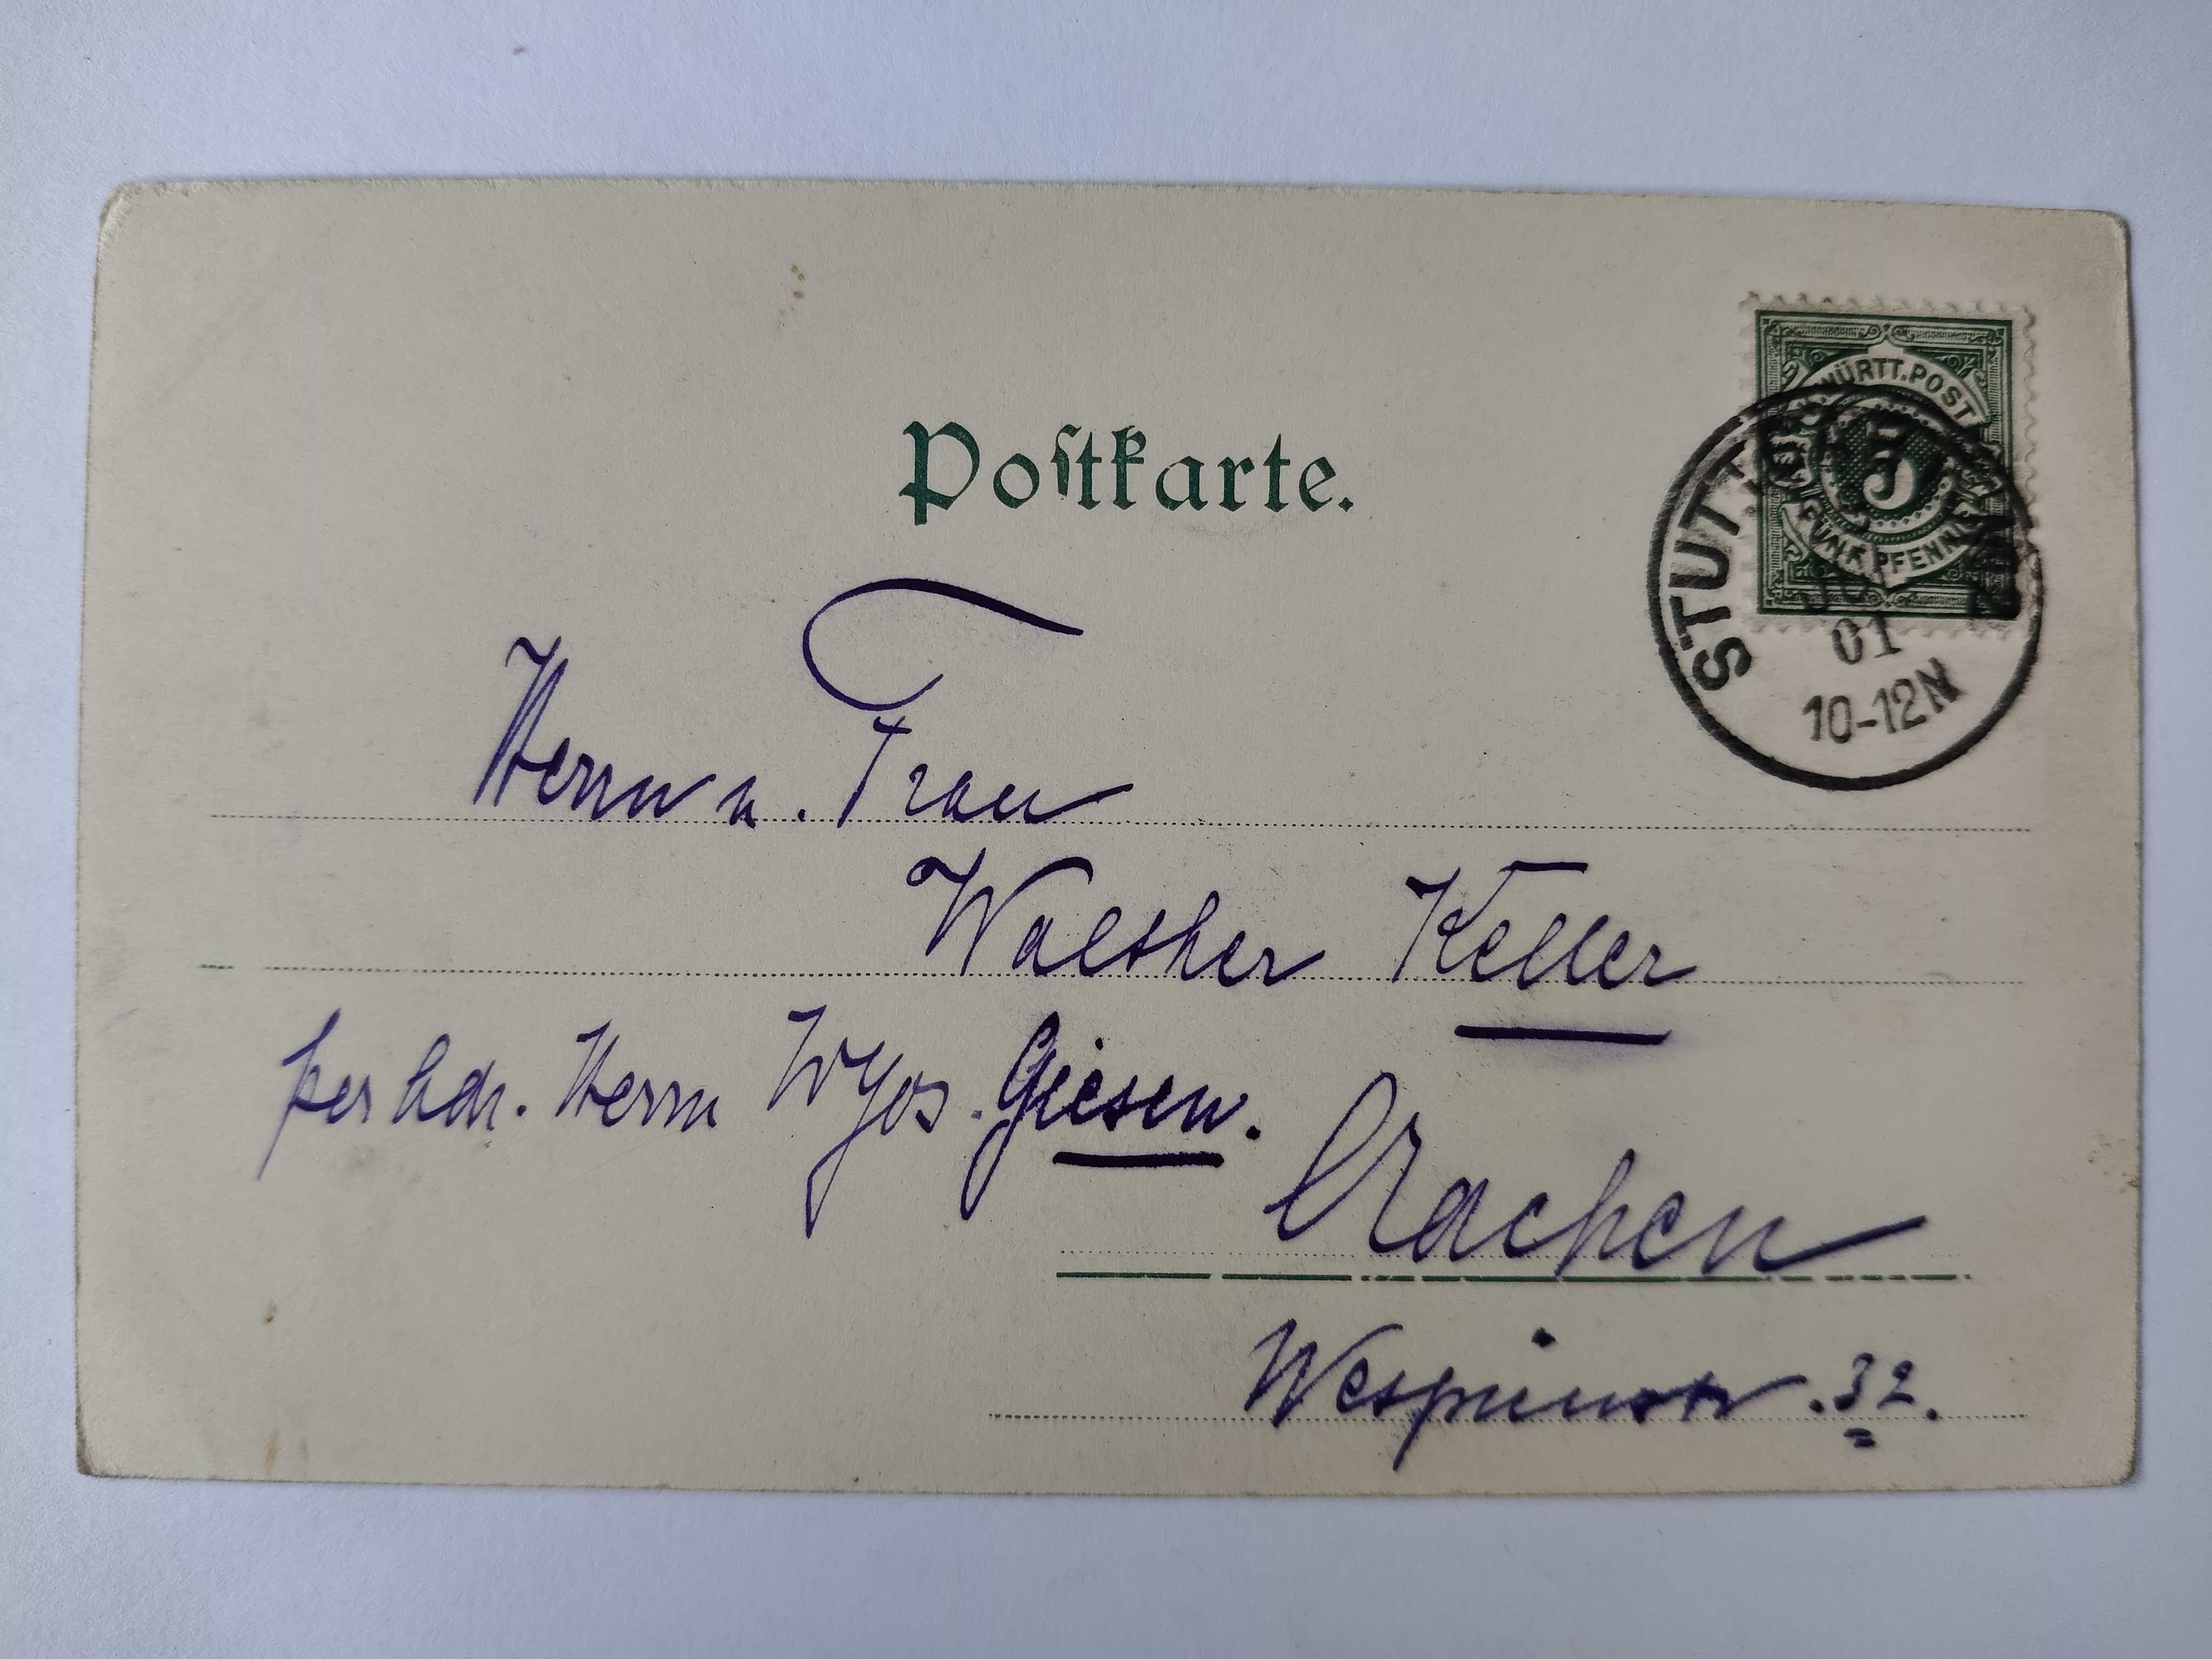 WÜRTT. POST
5
FÜNF PFENNIG
STUTT
01
10-12N
Postkarte.
Herrn u. Frau
Walther Keller
per Adr. Herrn Giesen.
Aachen
Wespienstr. 32.